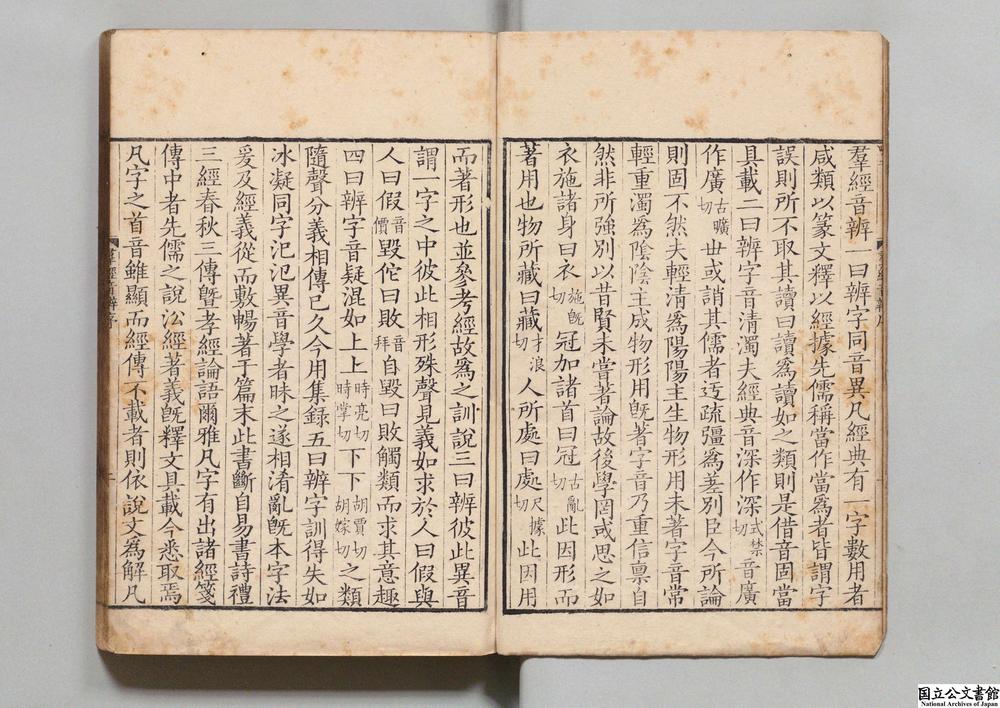 羣經音辨一曰辨字同音異凡經典有一字數用者
咸類以篆文釋以經據先儒稱當作當爲者皆謂字
誤則所不取其讀曰讀爲讀如之類則是借音固當
具載二曰辨字音清濁夫經典音深作深式禁切音廣
作廣古曠切世或誚其儒者迂疏彊爲差別臣今所論
則固不然夫輕清爲陽陽主生物形用未著字音常
輕重濁爲陰陰主成物形用旣著字音乃重信禀自
然非所強別以昔賢未嘗著論故後學罔或思之如
衣施諸身曰衣施旣切冠加諸首曰冠古亂切此因形而
著用也物所藏曰藏才浪切人所處曰處尺據切此因用
而著形也並參考經故爲之訓說三曰辨彼此異音
謂一字之中彼此相形殊聲見義如求於人曰假與
人曰假音價毀佗曰敗音拜自毀曰敗觸類而求其意趣
四曰辨字音疑混如上上時亮切時掌切下下胡賈切胡嫁切之類
隨聲分義相傳已久今用集録五曰辨字訓得失如
冰凝同字汜氾異音學者昧之遂相淆亂旣本字法
爰及經義從而敷暢著于篇末此書斷自易書詩禮
三經春秋三傳曁孝經論語爾雅凡字有出諸經箋
傳中者先儒之說㳂經著義旣釋文具載今悉取焉
凡字之首音雖顯而經傳不載者則依說文爲解凡
羣經音辨序
国立公文書館
National Archives of Japan